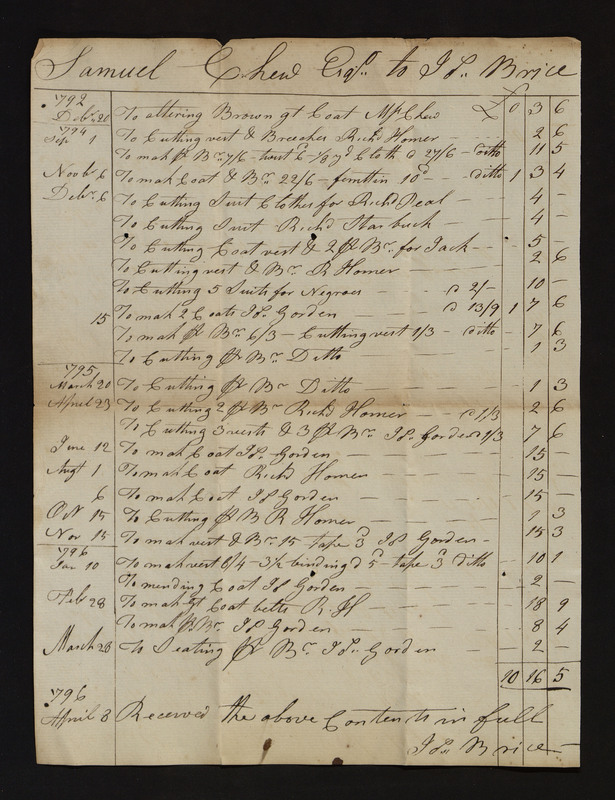 Samuel Chew Esqr. to Js. Brice
1792
Debr. 20 To altering Brown gt Coat Mr Chew £0 3 6
1794
Sep. 1 To Cutting vest & Breaches Richd Homer — 2 6
To mak pr Br 7/6 — ditto 11 5
Novbr 6 To mak Coat & Br. 22/6 — 10d — ditto 1 3 4
Debr. 6 To Cutting Suit Clothes for Richd Real — 4 —
To Cutting Suit Richd Starbuck — 4 —
To Cutting Coat vest & 2 pr Br. for Jack — 5 —
To Cutting vest & Br. R Homer — 2 6
To Cutting 5 Suits for Negroes — a 2/- 10 —
15 To mak 2 Coats Js. Gorden — a 13/9 1 7 6
To mak pr Br. 6/3 — Cutting vest 1/3 — ditto — 7 6
To Cutting pr Br Ditto — 1 3
1795
March 20 To Cutting pr Br Ditto — 1 3
April 23 To Cutting 2 pr Br Richd Homer — a 1/3 2 6
To Cutting 3 vests & 3 pr Br. Js. Gorden a 1/3 7 6
June 12 To mak Coat Js. Gorden — 15 —
Augt 1 To mak Coat Richd Homer — 15 —
6 To mak Coat Js Gorden — 15 —
Oct 15 To Cutting pr B R Homer — 1 3
Nov 15 To mak vest & Br. 15 — tape 3d Js Gorden — 15 3
1796
Jan 10 To mak vest 6/4 — 3½ binding d 5d — tape 3d ditto — 10 1
To mending Coat Js Gorden — 2 —
Feb 28 To mak gt Coat R. H — 18 9
To mak pr Br. Js Gorden — 8 4
March 28 To Seating pr Br. Js. Gorden — 2 —
10 16 5
1796
April 8 Received the above Contents in full
Js. Brice